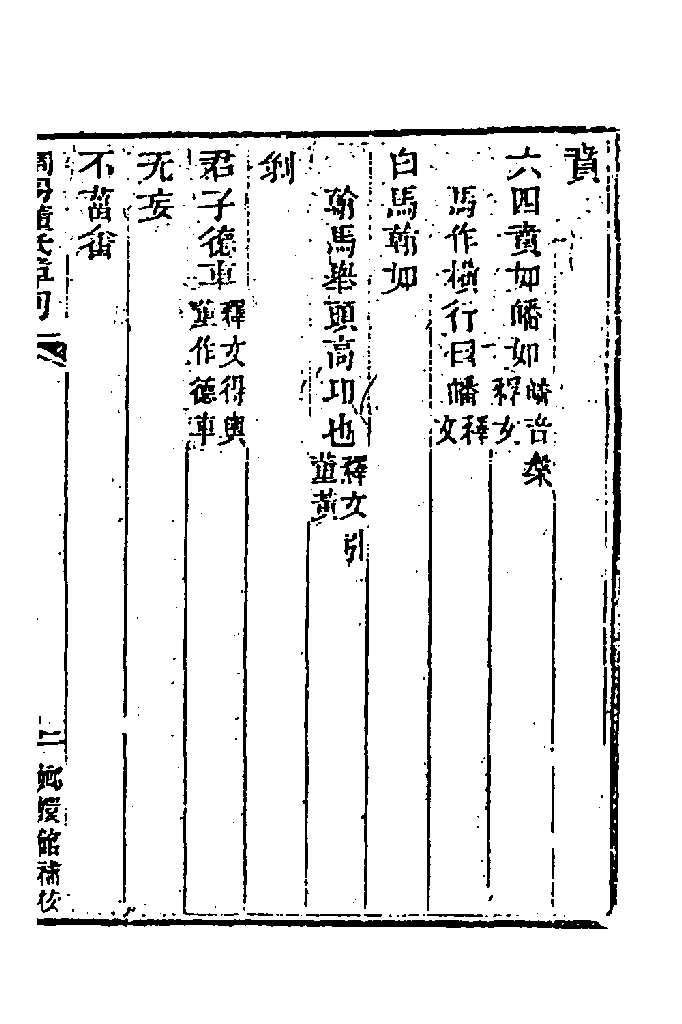 賁
六四賁如皤如皤音槃釋文
馬作橫行曰皤釋文
白馬翰如
翰馬舉頭高卬也釋文引董黃
剝
君子德車釋文得輿董作德車
无妄
不菑畬
周易董氏章句
二
嫏嬛館補校